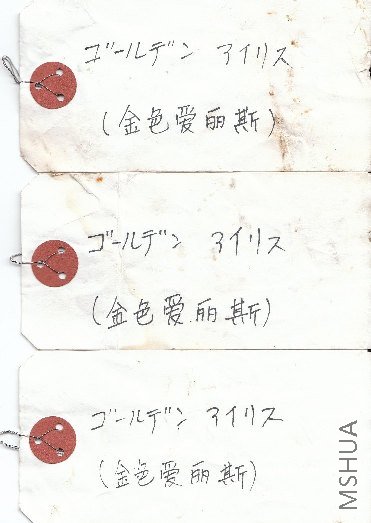 ゴールデン アイリス
(金色爱丽斯)
ゴールデン アイリス
(金色爱丽斯)
ゴールデン アイリス
(金色爱丽斯)
MSHUA